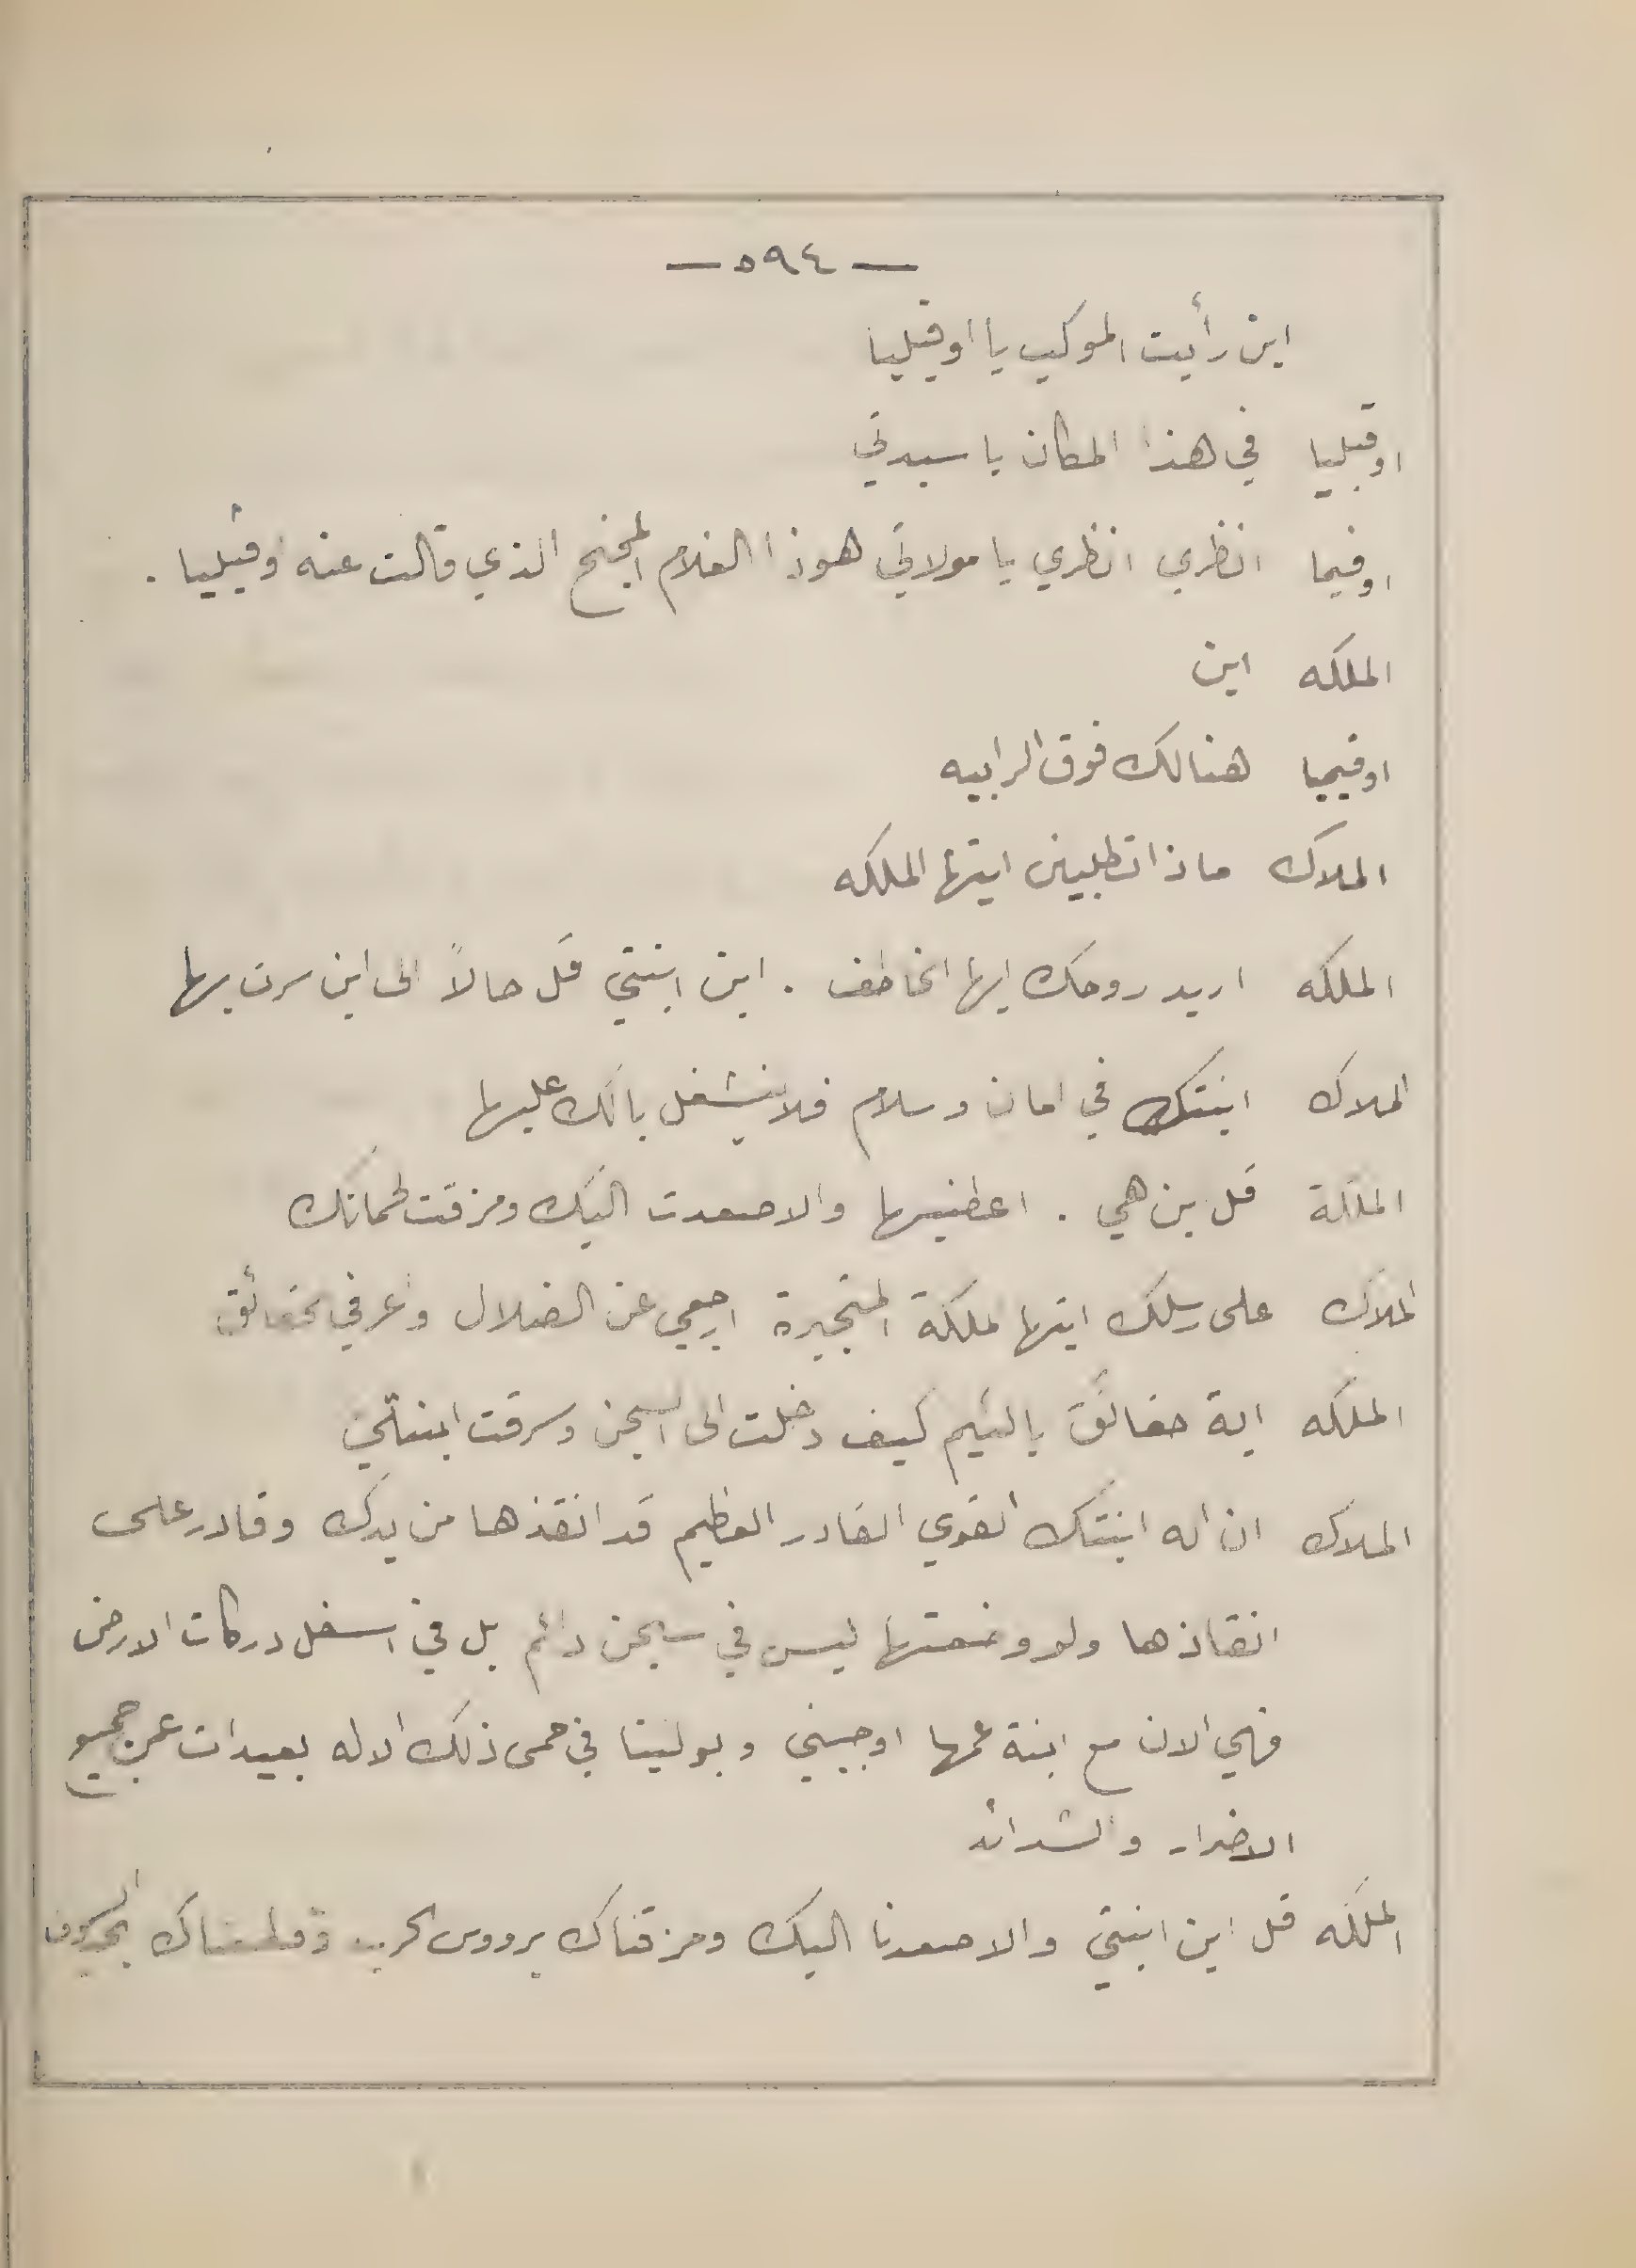 — ٥٩٤ —
اين رأيت الموكب يا اوفيليا
اوفيليا في هذا المكان يا سيدتي
اوفيما انظري انظري يا مولاتي هوذا الغلام المجنح الذي قالت عنه اوفيليا .
الملكه اين
اوفيميا هنالك فوق الرابيه
الملاك ماذا تطلبين ايتها الملكه
الملكه اريد روحك ايها الخاطف . اين ابنتي قل حالاً الى اين سرت بها
الملاك ابنتك في امان وسلام فلا ينشغل بالك عليها
الملكة قل اين هي . اعطنيها والا صعدت اليك ومزقت لحمانك
الملاك على رسلك ايتها الملكة المتجبرة ارجعي عن الضلال واعرفي الحقائق
الملكه اية حقائق يا لئيم كيف دخلت الى السجن وسرقت ابنتي
الملاك ان اله ابنتك القوي القادر العظيم قد انقذها من يدك وقادر على
انقاذها ولو وضعتها ليس في سجن دائم بل في اسفل دركات الارض
فهي الان مع ابنة عمها اوجيني وبولينا في حمى ذلك الاله بعيدات عن جميع
الاضرار والشدائد
الملكه قل اين ابنتي والا صعدنا اليك ومزقناك برووس الحراب وقطعناك بحروف